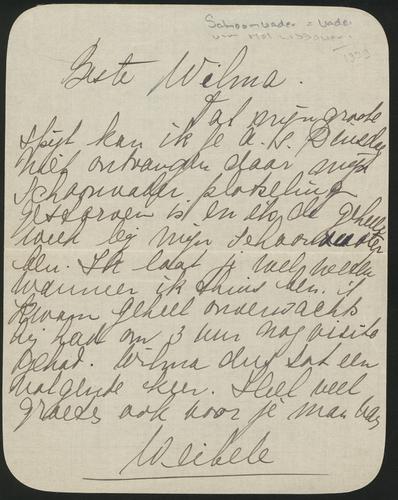 Schoonvader = vader
van
1939
Beste Wilma.
Tot mijn groote
spijt kan ik je a.s. Dinsdag
niet ontvangen daar mijn
schoonvader plotseling
gestorven is en ik de geheele
week bij mijn schoonmoeder
ben. Ik laat je wel weten
wanneer ik thuis ben.
kwam geheel onverwachts
hij had om 3 uur nog visite
gehad. Wilma dus tot een
volgende keer. Heel veel
groetjes ook voor je man van